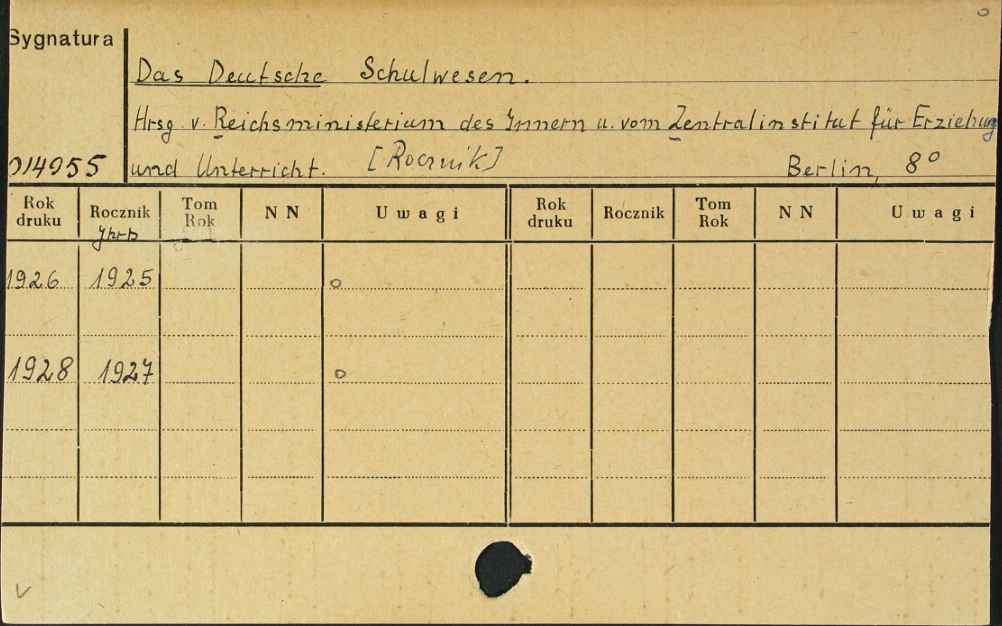 Sygnatura
Das Deutsche Schulwesen.
Hrsg. v. Reichsministerium des Innern u. vom Zentralinstitut für Erziehung
014955 und Unterricht. [Rocznik] Berlin, 8°
Rok druku Rocznik Tom Rok NN Uwagi Rok druku Rocznik Tom Rok NN Uwagi
1926 1925 o
1928 1927 o